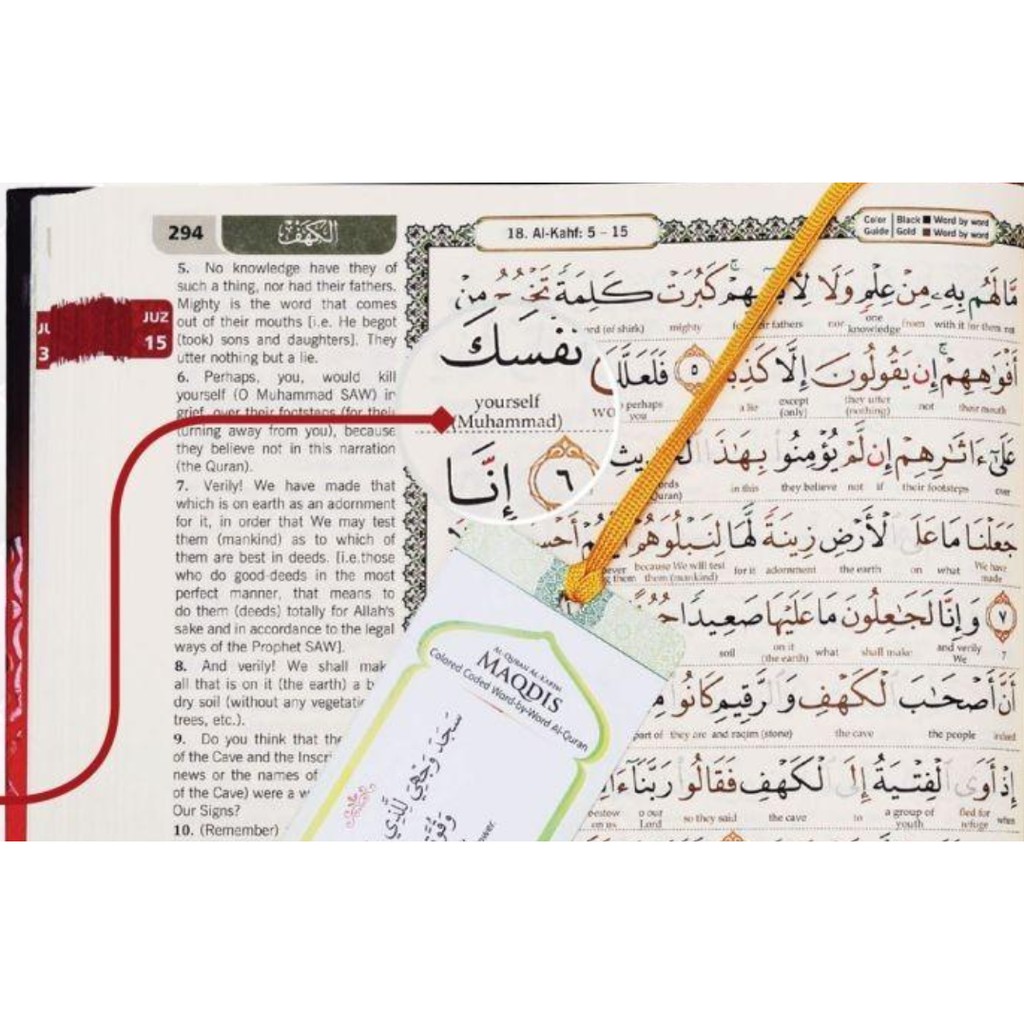 294
الكهف
18. Al-Kahf: 5 – 15
Color Guide
Black Word by word
Gold Word by word
JUZ
15
5. No knowledge have they of
such a thing, nor had their fathers.
Mighty is the word that comes
out of their mouths [i.e. He begot
(took) sons and daughters]. They
utter nothing but a lie.
6. Perhaps, you, would kill
yourself (O Muhammad SAW) in
grief, over their footsteps (for their
turning away from you), because
they believe not in this narration
(the Quran).
7. Verily! We have made that
which is on earth as an adornment
for it, in order that We may test
them (mankind) as to which of
them are best in deeds. [i.e.those
who do good deeds in the most
perfect manner, that means to
do them (deeds) totally for Allah's
sake and in accordance to the legal
ways of the Prophet SAW].
8. And verily! We shall mak
all that is on it (the earth) a b
dry soil (without any vegetatio
trees, etc.).
9. Do you think that the
of the Cave and the Inscri
news or the names of
of the Cave) were a w
Our Signs?
10. (Remember)
مَّالَهُم بِهِۦ مِنْ عِلْمٍ وَلَا كَبُرَتْ كَلِمَةً تَخْرُجُ مِنْ
(of shirk) mighty fathers nor one knowledge from with it for them
نَفْسَكَ
yourself
(Muhammad)
أَفْوَٰهِهِمْ إِن يَقُولُونَ إِلَّا كَذِبًا ٥ فَلَعَلَّكَ
perhaps you a lie except (only) they utter (nothing) not their mouth
إِنَّا ٦
عَلَىٰٓ ءَاثَٰرِهِمْ إِن لَّمْ يُؤْمِنُوا۟ بِهَٰذَا الْحَدِيثِ
in this they believe not if their footsteps over
جَعَلْنَا مَا عَلَى الْأَرْضِ زِينَةً لَّهَا لِنَبْلُوَهُمْ أَيُّهُمْ
because We will test them (mankind) for it adornment the earth on what We have made
وَإِنَّا لَجَٰعِلُونَ مَا عَلَيْهَا صَعِيدًا ٧
soil on it (the earth) what shall make and verily We 7
أَنَّ أَصْحَٰبَ الْكَهْفِ وَالرَّقِيمِ كَانُوا۟
part of they are and raqim (stone) the cave the people indeed
إِذْ أَوَى الْفِتْيَةُ إِلَى الْكَهْفِ فَقَالُوا۟ رَبَّنَآ
bestow on us o our Lord so they said the cave to a group of youth fled for refuge when
AL-QURAN AL-KARIM
MAQDIS
Colored Coded Word-by-Word Al-Quran
سَجَدَ وَجْهِيَ لِلَّذِي